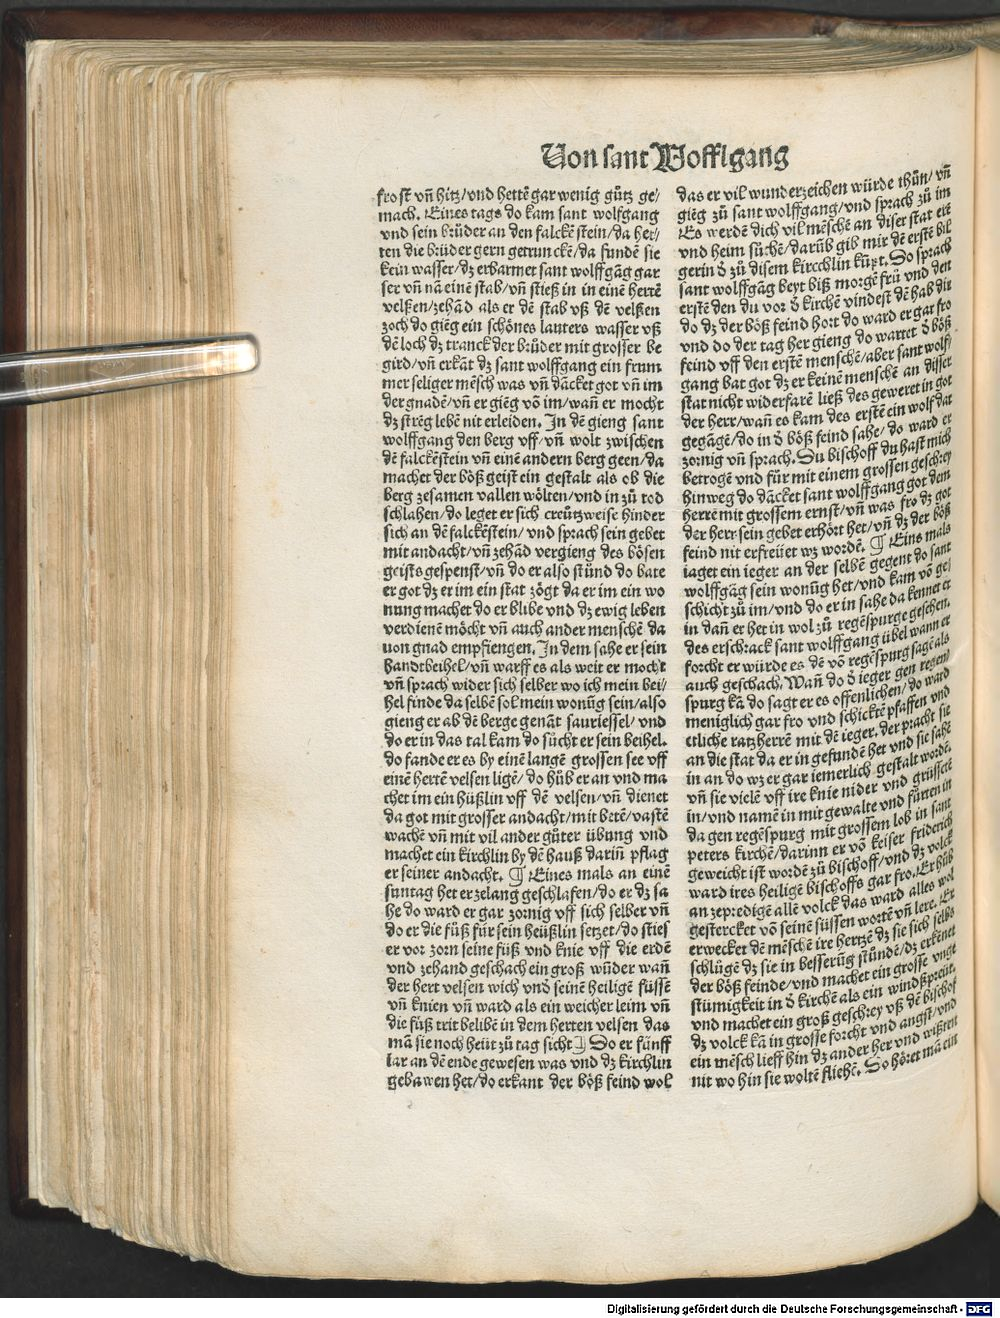 Von sant Wofflgang
frost vn̄ hitz/vnd hettē gar wenig gůtz ge/
mach. Eines tags do kam sant wolfgang
vnd sein brůder an den falckē stein/da het/
ten die brüder gern getrunckē/da fundē sie
kein wasser/dz erbarmet sant wolffgāg gar
ser vn̄ nā einē stab/vn̄ stieß in in einē hertē
velßen/zehād als er dē stab vß dē velßen
zoch do giēg ein schönes lauters wasser vß
dē loch dz tranck der brůder mit grosser be
gird/vn̄ erkāt dz sant wolffgang ein frum
mer seliger mēsch was vn̄ dācket got vn̄ im
der gnadē/vn̄ er giēg vō im/wan̄ er mocht
dz strēg lebē nit erleiden. In dē gieng sant
wolffgang den berg vff/vn̄ wolt zwischen
dē falckēstein vn̄ einē andern berg geen/da
machet der böß geist ein gestalt als ob die
berg zesamen vallen wölten/vnd in zů tod
schlahen/do leget er sich creützweise hinder
sich an dē falckēstein/vnd sprach sein gebet
mit andacht/vn̄ zehād vergieng des bösen
geists gespenst/vn̄ do er also stůnd do bate
er got dz er im ein stat zögt da er im ein wo
nung machet do er blibe vnd dz ewig leben
verdienē möcht vn̄ auch ander menschē da
uon gnad empfiengen. In dem sahe er sein
handtbeihel/vn̄ warff es als weit er mocht
vn̄ sprach wider sich selber wo ich mein bei/
hel finde da selbē sol mein wonūg sein/also
gieng er ab dē berge genāt sauriessel/vnd
do er in das tal kam do sůcht er sein beihel.
do fande er es by einē langē grossen see vff
einē hertē velsen ligē/do hůb er an vnd ma
chet im ein hüßlin vff dē velsen/vn̄ dienet
da got mit grosser andacht/mit betē/vastē
wachē vn̄ mit vil ander gůter übung vnd
machet ein kirchlin by dē hauß darin̄ pflag
er seiner andacht. ¶ Eines mals an einē
suntag het er zelang geschlafen/do er dz sa
he do ward er gar zornig vff sich selber vn̄
do er die füß für sein heüßlin setzet/do sties
er vor zorn seine füß vnd knie vff die erdē
vnd zehand geschach ein groß wūder wan̄
der hert velsen wich vnd seinē heiligē füssē
vn̄ knien vn̄ ward als ein weicher leim vn̄
die füß trit belibē in dem herten velsen das
mā sie noch heüt zů tag sicht ¶ Do er fünff
iar an dē ende gewesen was vnd dz kirchlin
gebawen het/do erkant der böß feind wol
das er vil wunderzeichen würde thůn/vn̄
giēg zů sant wolffgang/vnd sprach zů im
Es werdē dich vil mēschē an diser stat erē
vnd heim sůchē/darūb gib mir dē erstē bil
gerin d̄ zů disem kircchlin kūpt. Do sprach
sant wolffgāg beyt biß morgē frü vnd den
erstē den du vor d̄ kirchē vindest dē hab dir
do dz der böß feind hort do ward er gar fro
vnd do der tag her gieng do wartet d̄ böß
feind vff den erstē menschē/aber sant wolf/
gang bat got dz er keinē menschē an disser
stat nicht widerfarē ließ des geweret in got
der herr/wan̄ es kam des erstē ein wolf dar
gegāgē/do in d̄ böß feind sahe/do ward er
zornig vn̄ sprach. Du bischoff du hast mich
betrogē vnd fůr mit einem grossen geschrey
hinweg do dācket sant wolffgang got dem
herrē mit grossem ernst/vn̄ was fro dz got
der herr sein gebet erhört het/vn̄ dz der böß
feind nit erfreüet wz wordē. ¶ Eins mals
iaget ein ieger an der selbē gegent do sant
wolffgāg sein wonūg het/vnd kam vō ge/
schicht zů im/vnd do er in sahe da kennet er
in dan̄ er het in wol zů regēspurge gesehen.
des erschrack sant wolffgang übel wann er
forcht er würde es dē vō regēspurg sagē als
auch geschach. Wan̄ do d̄ ieger gen regen/
spurg kā do sagt er es offenlichen/do ward
meniglich gar fro vnd schicktē pfaffen vnd
etliche ratzherrē mit dē ieger. der pracht sie
an die stat da er in gefundē het vnd sie sahē
in an do wz er gar iemerlich gestalt wordē.
vn̄ sie vielē vff ire knie nider vnd grüssetē
in/vnd namē in mit gewalte vnd fürten in
da gen regēspurg mit grossem lob in sant
peters kirchē/darinn er vō keiser friderich
geweicht ist wordē zů bischoff/vnd dz volck
ward ires heiligē bischoffs gar fro. Er hůb
an zepredigē allē volck das ward alles wol
gestercket vō seinē süssen wortē vn̄ lere. Er
erwecket dē mēschē ire hertzē dz sie sich selbs
schlůgē dz sie in besserūg stůndē/dz erkēnet
der böß feinde/vnd machet ein grosse vnge
stümigkeit in d̄ kirchē als ein windßpreut.
vnd machet ein groß geschrey vß dē bischof
dz volck kā in grosse forcht vnd angst/vnd
ein mēsch lieff hin dz ander her vnd wißten
nit wo hin sie woltē fliehē. Do höret mā ein
Digitalisierung gefördert durch die Deutsche Forschungsgemeinschaft - DFG